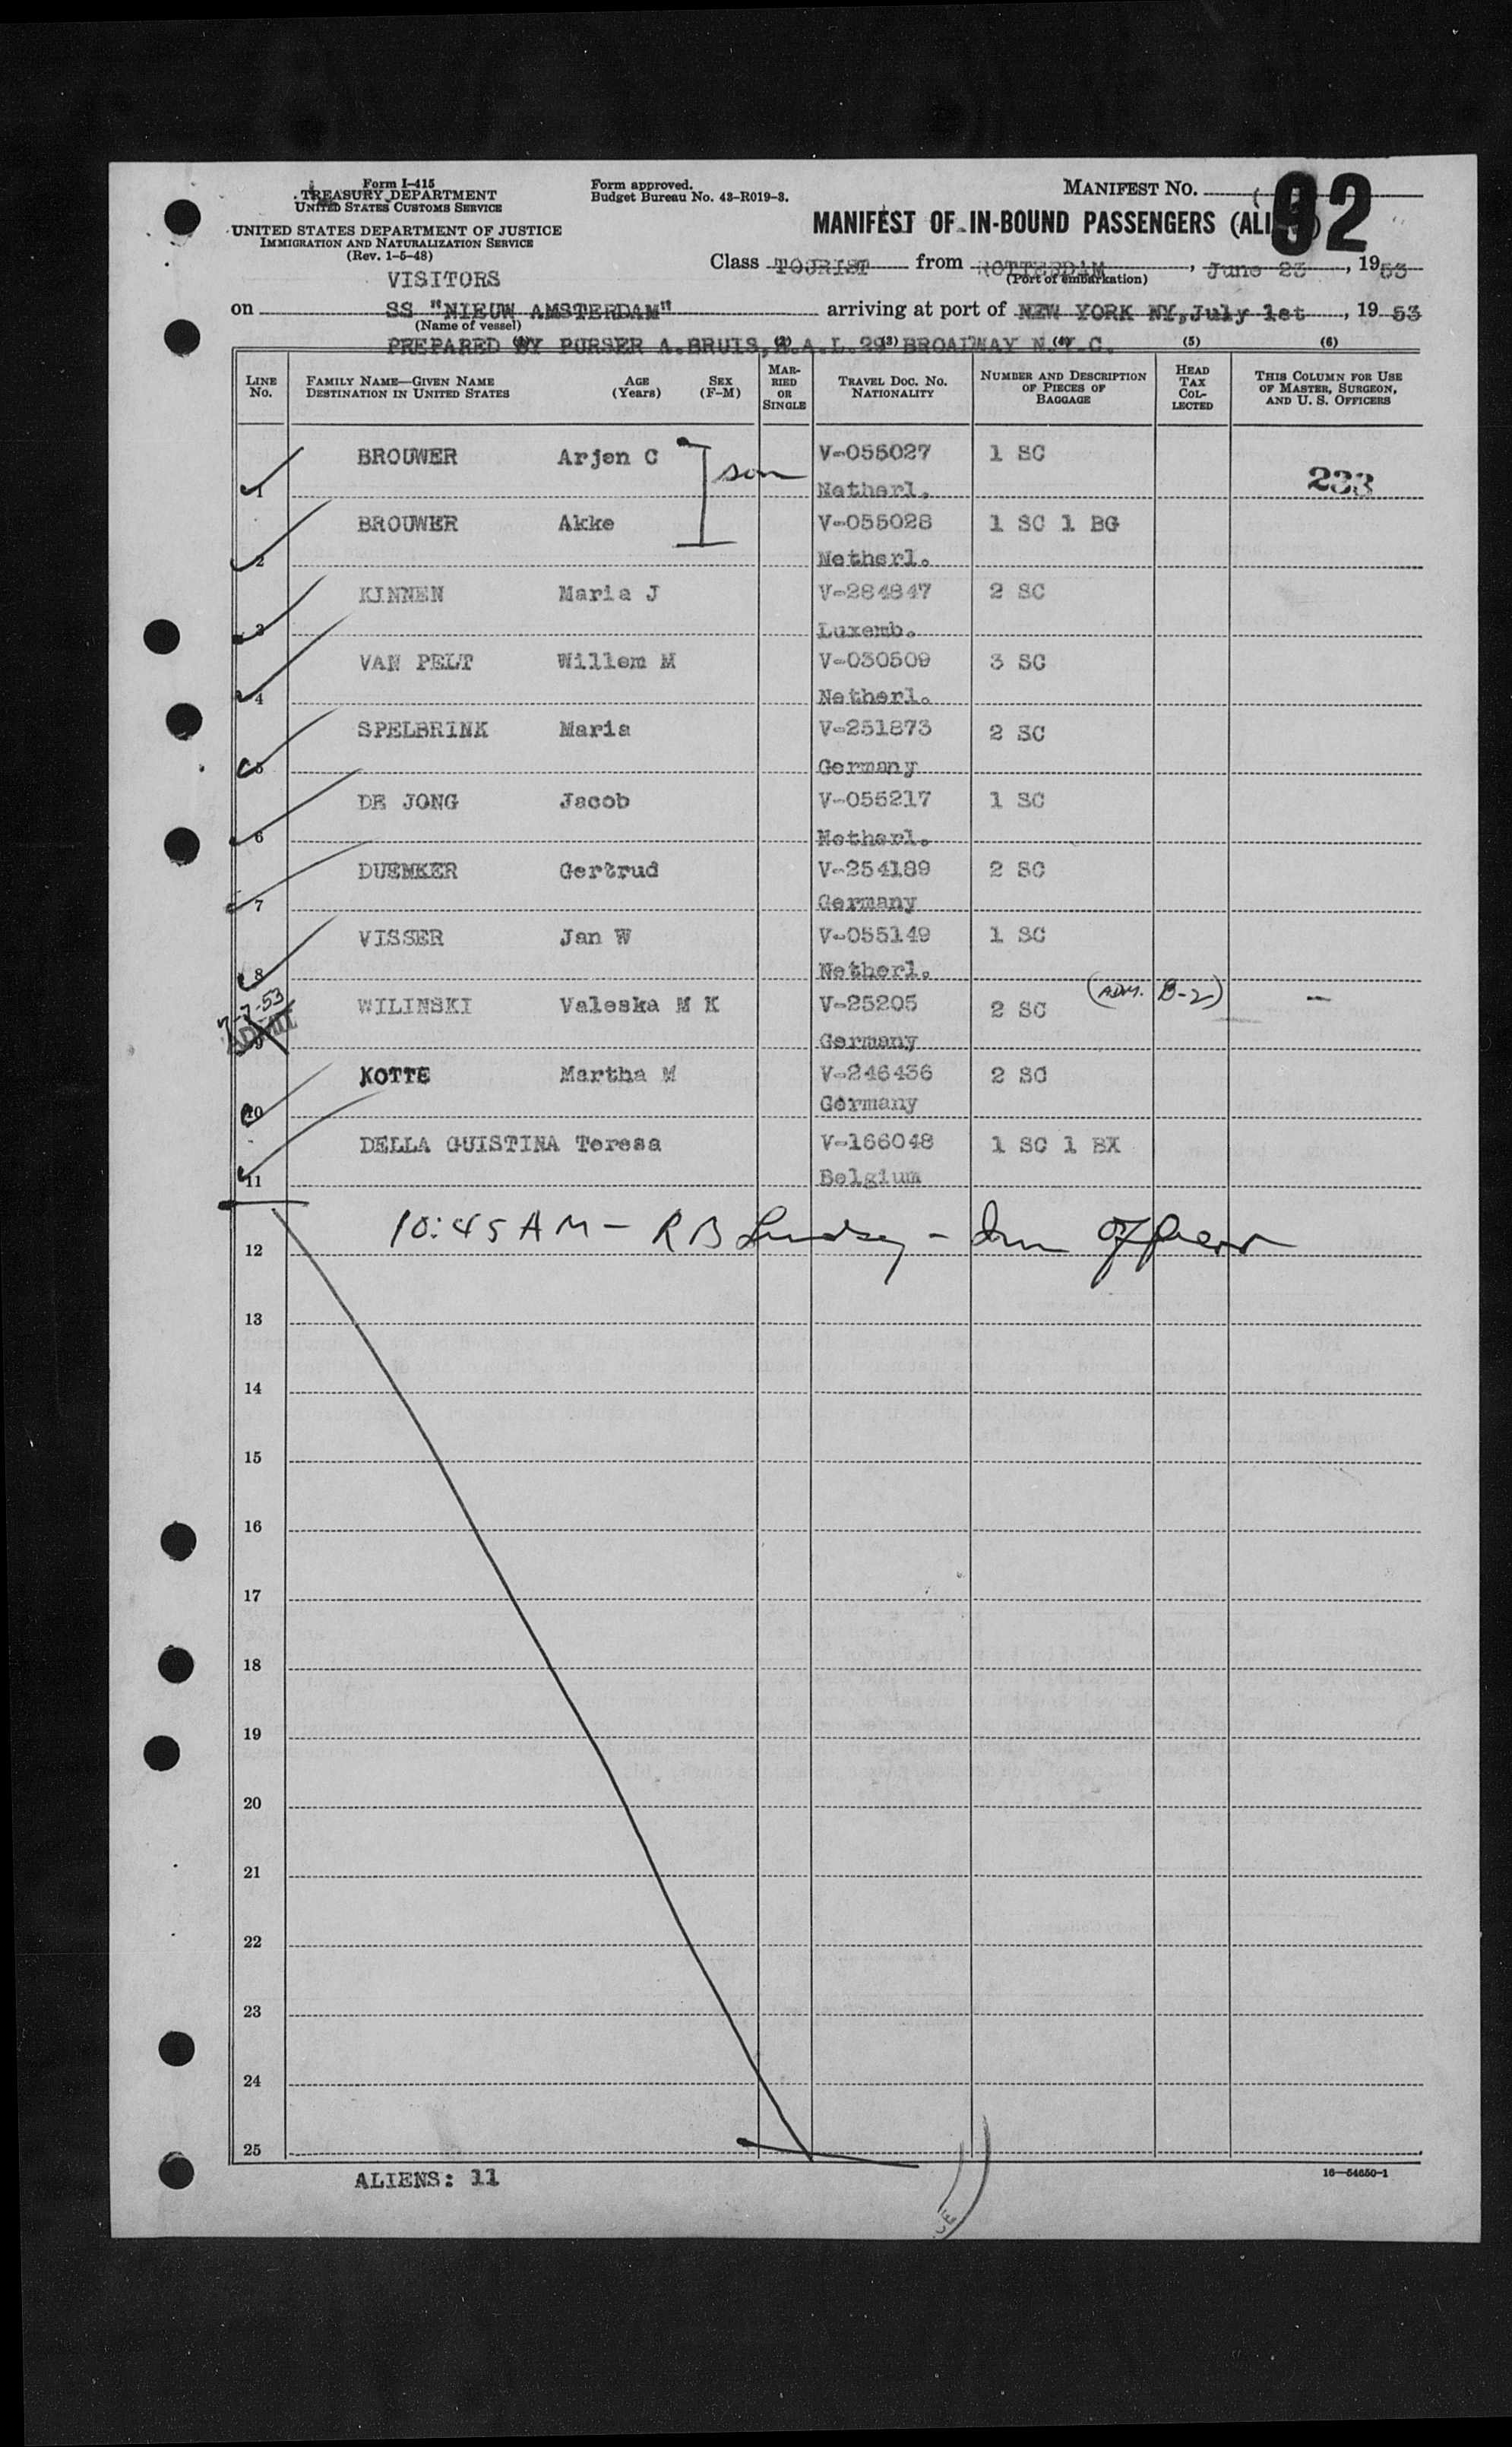 Form I-415
TREASURY DEPARTMENT
UNITED STATES CUSTOMS SERVICE
UNITED STATES DEPARTMENT OF JUSTICE
IMMIGRATION AND NATURALIZATION SERVICE
(Rev. 1-5-48)
Form approved.
Budget Bureau No. 43-R019-3.
MANIFEST No.
92
MANIFEST OF IN-BOUND PASSENGERS
VISITORS
Class TOURIST from ROTTERDAM, June 23, 1953
(Port of embarkation)
on SS "NIEUW AMSTERDAM" arriving at port of NEW YORK NY, July 1st, 1953
(Name of vessel)
PREPARED BY PURSER A.BRUIS, H.A.L. 29 BROADWAY N.Y.C.
(1) (2) (3) (4) (5) (6)
LINE No. FAMILY NAME—GIVEN NAME DESTINATION IN UNITED STATES AGE (Years) SEX (F-M) MARRIED OR SINGLE TRAVEL DOC. NO. NATIONALITY NUMBER AND DESCRIPTION OF PIECES OF BAGGAGE HEAD TAX COLLECTED THIS COLUMN FOR USE OF MASTER, SURGEON, AND U. S. OFFICERS
BROUWER Arjen C son V-055027 1 SC
1 Netherl. 233
BROUWER Akke V-055028 1 SC 1 BG
2 Netherl.
KINNEN Maria J V-284847 2 SC
3 Luxemb.
VAN PELT Willem M V-030509 3 SC
4 Netherl.
SPELBRINK Maria V-251873 2 SC
5 Germany
DE JONG Jacob V-055217 1 SC
6 Netherl.
DUENKER Gertrud V-254189 2 SC
7 Germany
VISSER Jan W V-055149 1 SC
8 Netherl.
7-7-53 WILINSKI Valeska M K V-25205 2 SC (ADM. B-2) —
ADMIT
9 Germany
KOTTE Martha M V-246436 2 SC
10 Germany
DELLA GUISTINA Teresa V-166048 1 SC 1 BX
11 Belgium
10:45 AM - R B Lindsey - Imm Officer
12
13
14
15
16
17
18
19
20
21
22
23
24
25
ALIENS: 11
16—54650-1